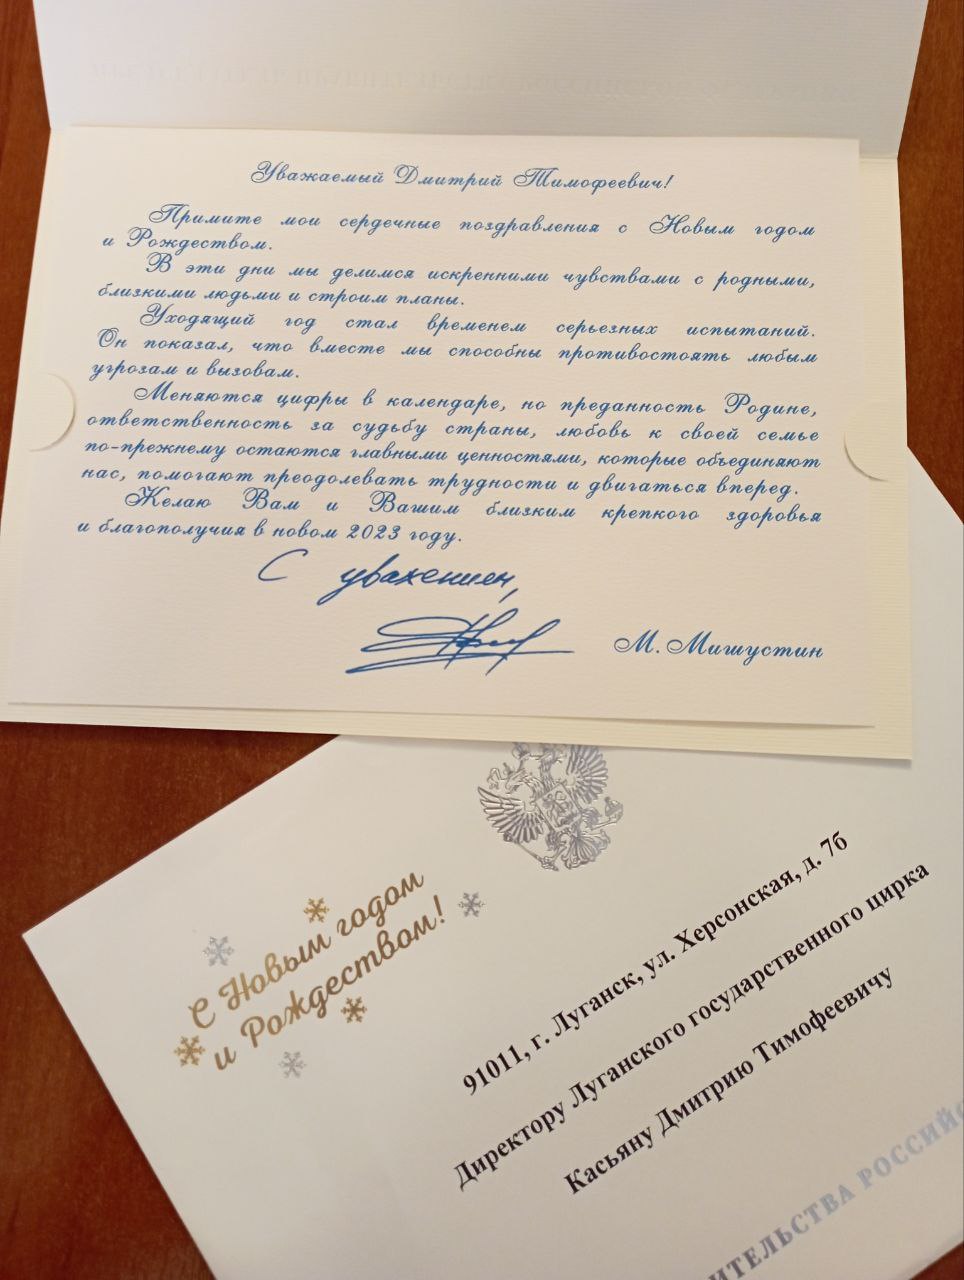 Уважаемый Дмитрий Тимофеевич!
Примите мои сердечные поздравления с Новым годом
и Рождеством.
В эти дни мы делимся искренними чувствами с родными,
близкими людьми и строим планы.
Уходящий год стал временем серьезных испытаний.
Он показал, что вместе мы способны противостоять любым
угрозам и вызовам.
Меняются цифры в календаре, но преданность Родине,
ответственность за судьбу страны, любовь к своей семье
по-прежнему остаются главными ценностями, которые объединяют
нас, помогают преодолевать трудности и двигаться вперед.
Желаю Вам и Вашим близким крепкого здоровья
и благополучия в новом 2023 году.
С уважением,
М. Мишустин
С Новым годом
и Рождеством!
91011, г. Луганск, ул. Херсонская, д. 7б
Директору Луганского государственного цирка
Касьяну Дмитрию Тимофеевичу
ИТЕЛЬСТВА РОССИЙС